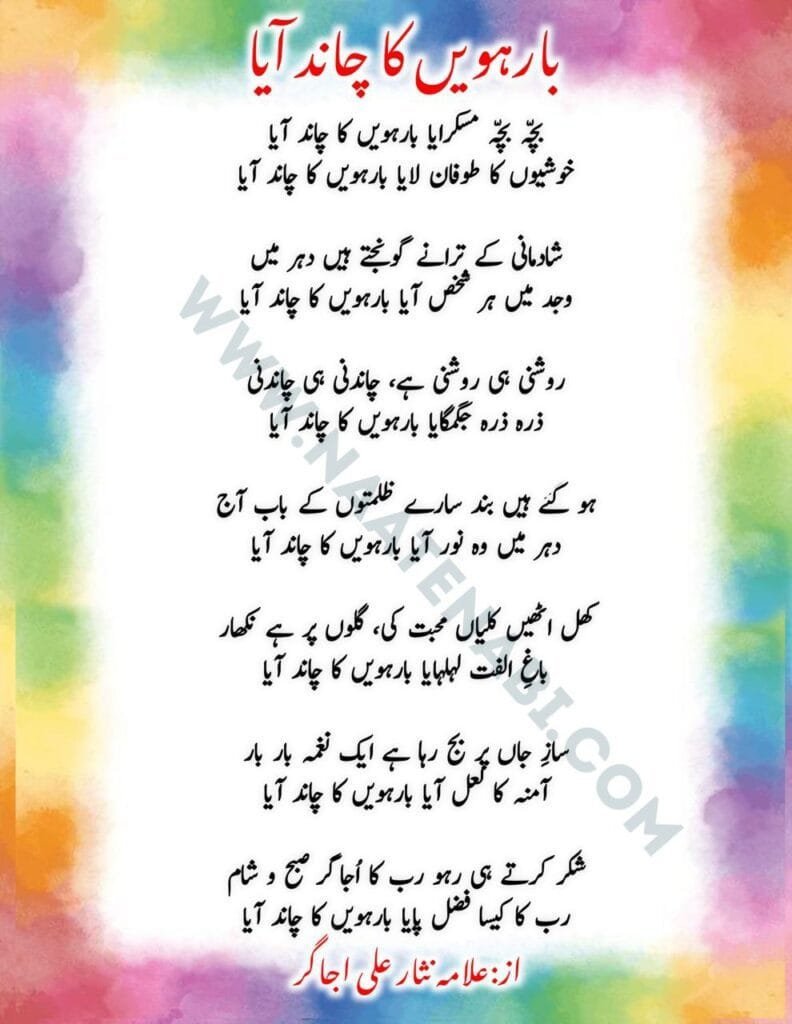 بارہویں کا چاند آیا
بچّہ بچّہ مسکرایا بارہویں کا چاند آیا
خوشیوں کا طوفان لایا بارہویں کا چاند آیا
شادمانی کے ترانے گونجتے ہیں دہر میں
وجد میں ہر شخص آیا بارہویں کا چاند آیا
روشنی ہی روشنی ہے، چاندنی ہی چاندنی
ذرہ ذرہ جگمگایا بارہویں کا چاند آیا
ہو گئے ہیں بند سارے ظلمتوں کے باب آج
دہر میں وہ نور آیا بارہویں کا چاند آیا
کھل اٹھیں کلیاں محبت کی، گلوں پر ہے نکھار
باغِ الفت لہلہایا بارہویں کا چاند آیا
سازِ جاں پر بج رہا ہے ایک نغمہ بار بار
آمنہ کا لعل آیا بارہویں کا چاند آیا
شکر کرتے ہی رہو رب کا اُجاگر صبح و شام
رب کا کیسا فضل پایا بارہویں کا چاند آیا
از: علامہ نثار علی اجاگر
WWW.NAATENABI.COM